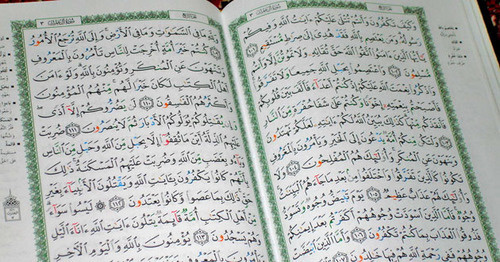 وَكَيْفَ تَكْفُرُونَ وَأَنتُمْ تُتْلَىٰ عَلَيْكُمْ ءَايَٰتُ ٱللَّهِ وَفِيكُمْ
رَسُولُهُۥ وَمَن يَعْتَصِم بِٱللَّهِ فَقَدْ هُدِىَ إِلَىٰ صِرَٰطٍ مُّسْتَقِيمٍ ١٠١
يَٰٓأَيُّهَا ٱلَّذِينَ ءَامَنُوا۟ ٱتَّقُوا۟ ٱللَّهَ حَقَّ تُقَاتِهِۦ وَلَا تَمُوتُنَّ إِلَّا وَأَنتُم
مُّسْلِمُونَ ١٠٢ وَٱعْتَصِمُوا۟ بِحَبْلِ ٱللَّهِ جَمِيعًا وَلَا تَفَرَّقُوا۟
وَٱذْكُرُوا۟ نِعْمَتَ ٱللَّهِ عَلَيْكُمْ إِذْ كُنتُمْ أَعْدَآءً فَأَلَّفَ بَيْنَ قُلُوبِكُمْ
فَأَصْبَحْتُم بِنِعْمَتِهِۦٓ إِخْوَٰنًا وَكُنتُمْ عَلَىٰ شَفَا حُفْرَةٍ مِّنَ ٱلنَّارِ
فَأَنقَذَكُم مِّنْهَا كَذَٰلِكَ يُبَيِّنُ ٱللَّهُ لَكُمْ ءَايَٰتِهِۦ لَعَلَّكُمْ تَهْتَدُونَ ١٠٣
وَلْتَكُن مِّنكُمْ أُمَّةٌ يَدْعُونَ إِلَى ٱلْخَيْرِ وَيَأْمُرُونَ بِٱلْمَعْرُوفِ
وَيَنْهَوْنَ عَنِ ٱلْمُنكَرِ وَأُو۟لَٰٓئِكَ هُمُ ٱلْمُفْلِحُونَ ١٠٤
وَلَا تَكُونُوا۟ كَٱلَّذِينَ تَفَرَّقُوا۟ وَٱخْتَلَفُوا۟ مِنۢ بَعْدِ مَا جَآءَهُمُ ٱلْبَيِّنَٰتُ
وَأُو۟لَٰٓئِكَ لَهُمْ عَذَابٌ عَظِيمٌ ١٠٥ يَوْمَ تَبْيَضُّ وُجُوهٌ وَتَسْوَدُّ
وُجُوهٌ فَأَمَّا ٱلَّذِينَ ٱسْوَدَّتْ وُجُوهُهُمْ أَكَفَرْتُم بَعْدَ إِيمَٰنِكُمْ
فَذُوقُوا۟ ٱلْعَذَابَ بِمَا كُنتُمْ تَكْفُرُونَ ١٠٦ وَأَمَّا ٱلَّذِينَ ٱبْيَضَّتْ
وُجُوهُهُمْ فَفِى رَحْمَةِ ٱللَّهِ هُمْ فِيهَا خَٰلِدُونَ ١٠٧
وَلِلَّهِ مَا فِى ٱلسَّمَٰوَٰتِ وَمَا فِى ٱلْأَرْضِ وَإِلَى ٱللَّهِ تُرْجَعُ ٱلْأُمُورُ
١٠٩ كُنتُمْ خَيْرَ أُمَّةٍ أُخْرِجَتْ لِلنَّاسِ تَأْمُرُونَ بِٱلْمَعْرُوفِ
وَتَنْهَوْنَ عَنِ ٱلْمُنكَرِ وَتُؤْمِنُونَ بِٱللَّهِ وَلَوْ ءَامَنَ
أَهْلُ ٱلْكِتَٰبِ لَكَانَ خَيْرًا لَّهُم مِّنْهُمُ ٱلْمُؤْمِنُونَ
وَأَكْثَرُهُمُ ٱلْفَٰسِقُونَ ١١٠ لَن يَضُرُّوكُمْ إِلَّآ أَذًى
وَإِن يُقَٰتِلُوكُمْ يُوَلُّوكُمُ ٱلْأَدْبَارَ ثُمَّ لَا يُنصَرُونَ ١١١ ضُرِبَتْ
عَلَيْهِمُ ٱلذِّلَّةُ أَيْنَ مَا ثُقِفُوٓا۟ إِلَّا بِحَبْلٍ مِّنَ ٱللَّهِ وَحَبْلٍ مِّنَ ٱلنَّاسِ
وَبَآءُو بِغَضَبٍ مِّنَ ٱللَّهِ وَضُرِبَتْ عَلَيْهِمُ ٱلْمَسْكَنَةُ ذَٰلِكَ
بِأَنَّهُمْ كَانُوا۟ يَكْفُرُونَ بِـَٔايَٰتِ ٱللَّهِ وَيَقْتُلُونَ ٱلْأَنۢبِيَآءَ بِغَيْرِ
حَقٍّ ذَٰلِكَ بِمَا عَصَوا۟ وَّكَانُوا۟ يَعْتَدُونَ ١١٢ لَيْسُوا۟ سَوَآءً
مِّنْ أَهْلِ ٱلْكِتَٰبِ أُمَّةٌ قَآئِمَةٌ يَتْلُونَ ءَايَٰتِ ٱللَّهِ ءَانَآءَ ٱلَّيْلِ
وَهُمْ يَسْجُدُونَ ١١٣ يُؤْمِنُونَ بِٱللَّهِ وَٱلْيَوْمِ ٱلْءَاخِرِ